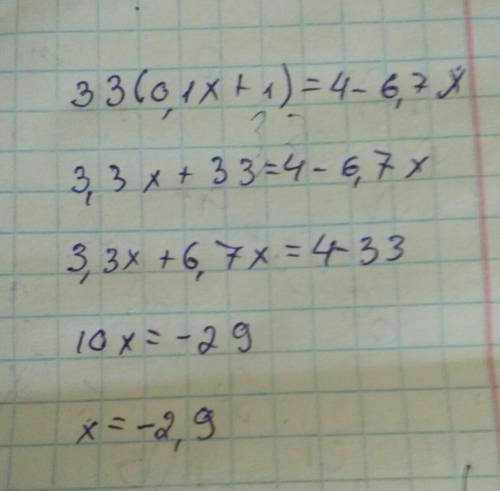 33(0,1x+1)=4-6,7x
3,3x+33=4-6,7x
3,3x+6,7x=4-33
10x=-29
x=-2,9